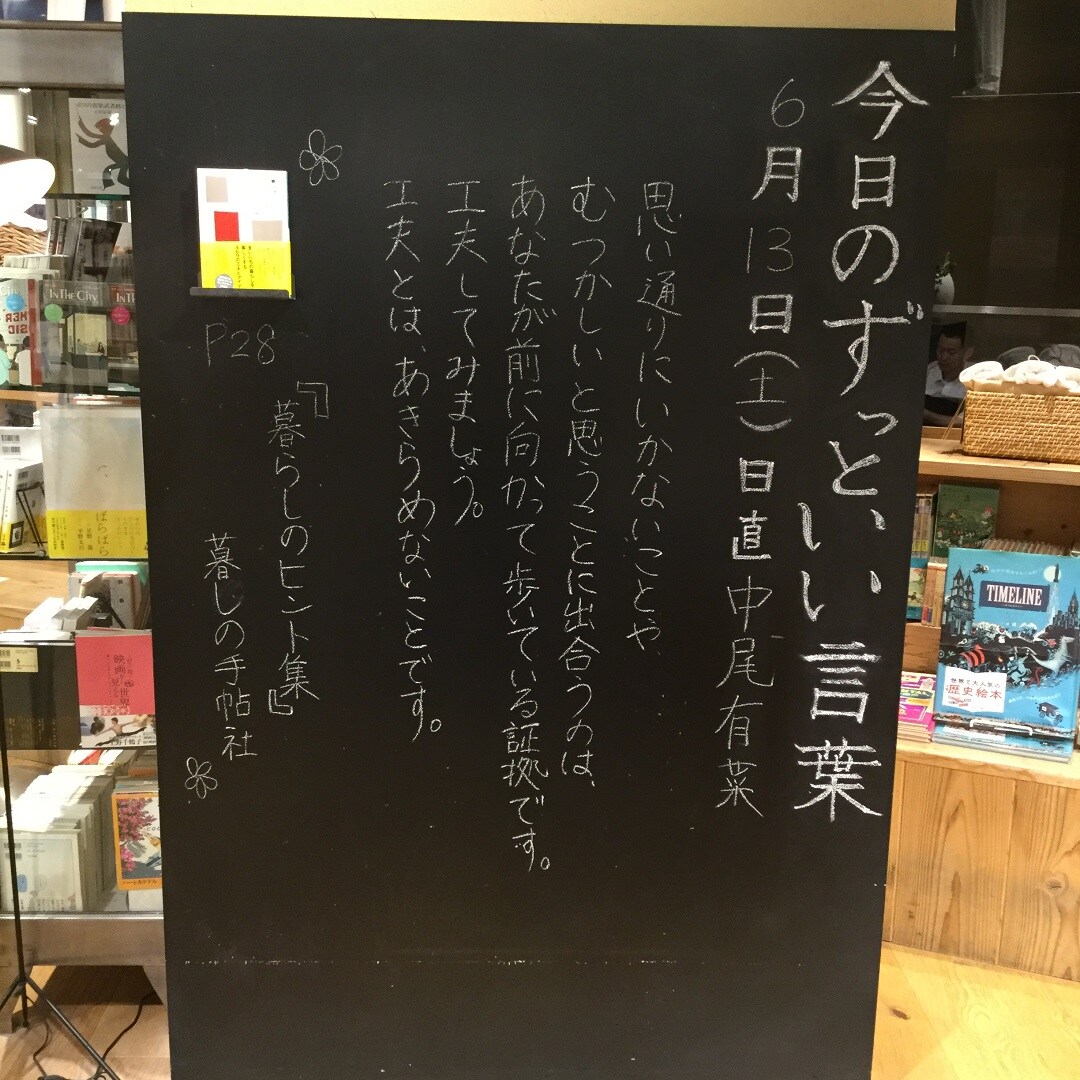 今日のずっと、いい言葉
6月13日(土)日直 中尾有菜
思い通りにいかないことや、
むつかしいと思うことに出合うのは、
あなたが前に向かって歩いている証拠です。
工夫してみましょう。
工夫とは、あきらめないことです。
P28
『暮らしのヒント集』
暮しの手帖社
IN THE CITY
ぼらぼら
TIMELINE
世界で大人気の
歴史絵本